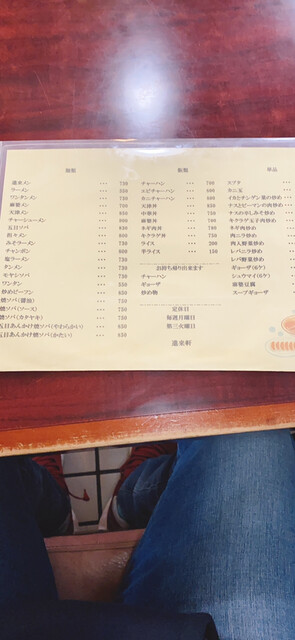 麺類
蓮来メン ・・・ 750
ラーメン ・・・ 550
ワンタンメン ・・・ 750
麻婆メン ・・・ 750
天津メン ・・・ 750
チャーシューメン ・・・ 850
五目ソバ ・・・ 750
担々メン ・・・ 750
みそラーメン ・・・ 750
チャンポン ・・・ 750
塩ラーメン ・・・ 750
タンメン ・・・ 750
モヤシソバ ・・・ 750
ワンタン ・・・ 550
炒めビーフン ・・・ 750
焼ソバ(醤油) ・・・ 750
焼ソバ(ソース) ・・・ 750
焼ソバ(カタヤキ) ・・・ 750
五目あんかけ焼ソバ(やわらかい) ・・・
五目あんかけ焼ソバ(かたい) ・・・ 850
飯類
チャーハン ・・・ 700
エビチャーハン ・・・ 800
カニチャーハン ・・・
天津丼 ・・・
中華丼 ・・・
麻婆丼 ・・・
ネギ肉丼 ・・・
キクラゲ丼 ・・・
ライス ・・・ 200
半ライス ・・・ 150
お持ち帰り出来ます
チャーハン
ギョーザ
炒め物
定休日
毎週月曜日
第三火曜日
蓮来軒
単品
スブタ
カニ玉
イカとチンゲン菜の炒め
ナスとピーマンの肉炒め
ナスの辛しみそ炒め
キクラゲ玉子肉炒め
ネギ肉炒め
肉ニラ炒め
肉入野菜炒め
レバニラ炒め
レバ野菜炒め
ギョーザ(6ケ)
シュウマイ(6ケ)
麻婆豆腐
スープギョーザ